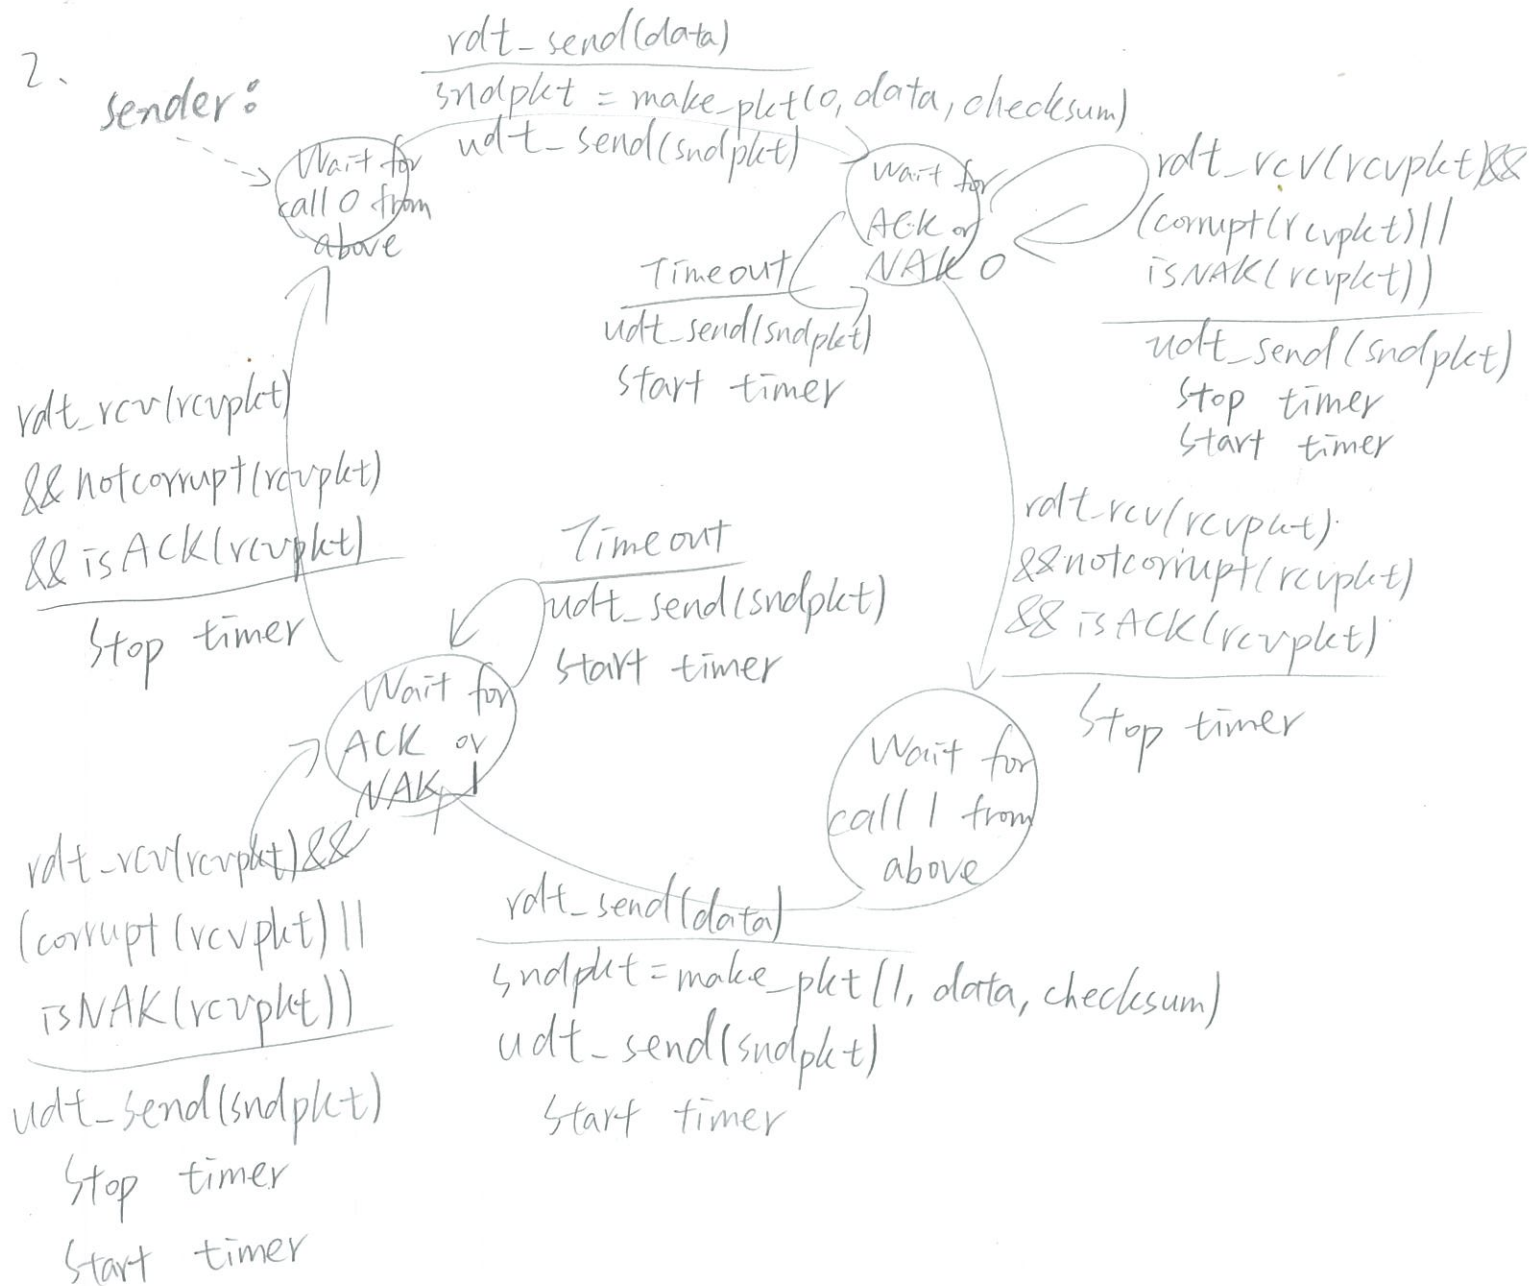 2.
sender:
rdt_send(data)
sndpkt = make_pkt(0, data, checksum)
udt_send(sndpkt)
Wait for
call 0 from
above
Wait for
ACK or
NAK 0
rdt_rcv(rcvpkt)&&
(corrupt(rcvpkt)||
isNAK(rcvpkt))
udt_send(sndpkt)
Stop timer
Start timer
Timeout
udt_send(sndpkt)
Start timer
rdt_rcv(rcvpkt)
&&notcorrupt(rcvpkt)
&&isACK(rcvpkt)
Stop timer
rdt_rcv(rcvpkt)
&&notcorrupt(rcvpkt)
&& isACK(rcvpkt)
Stop timer
Timeout
udt_send(sndpkt)
Start timer
Wait for
ACK or
NAK 1
Wait for
call 1 from
above
rdt_rcv(rcvpkt)&&
(corrupt(rcvpkt)||
isNAK(rcvpkt))
udt_send(sndpkt)
Stop timer
Start timer
rdt_send(data)
sndpkt=make_pkt(1, data, checksum)
udt_send(sndpkt)
Start timer